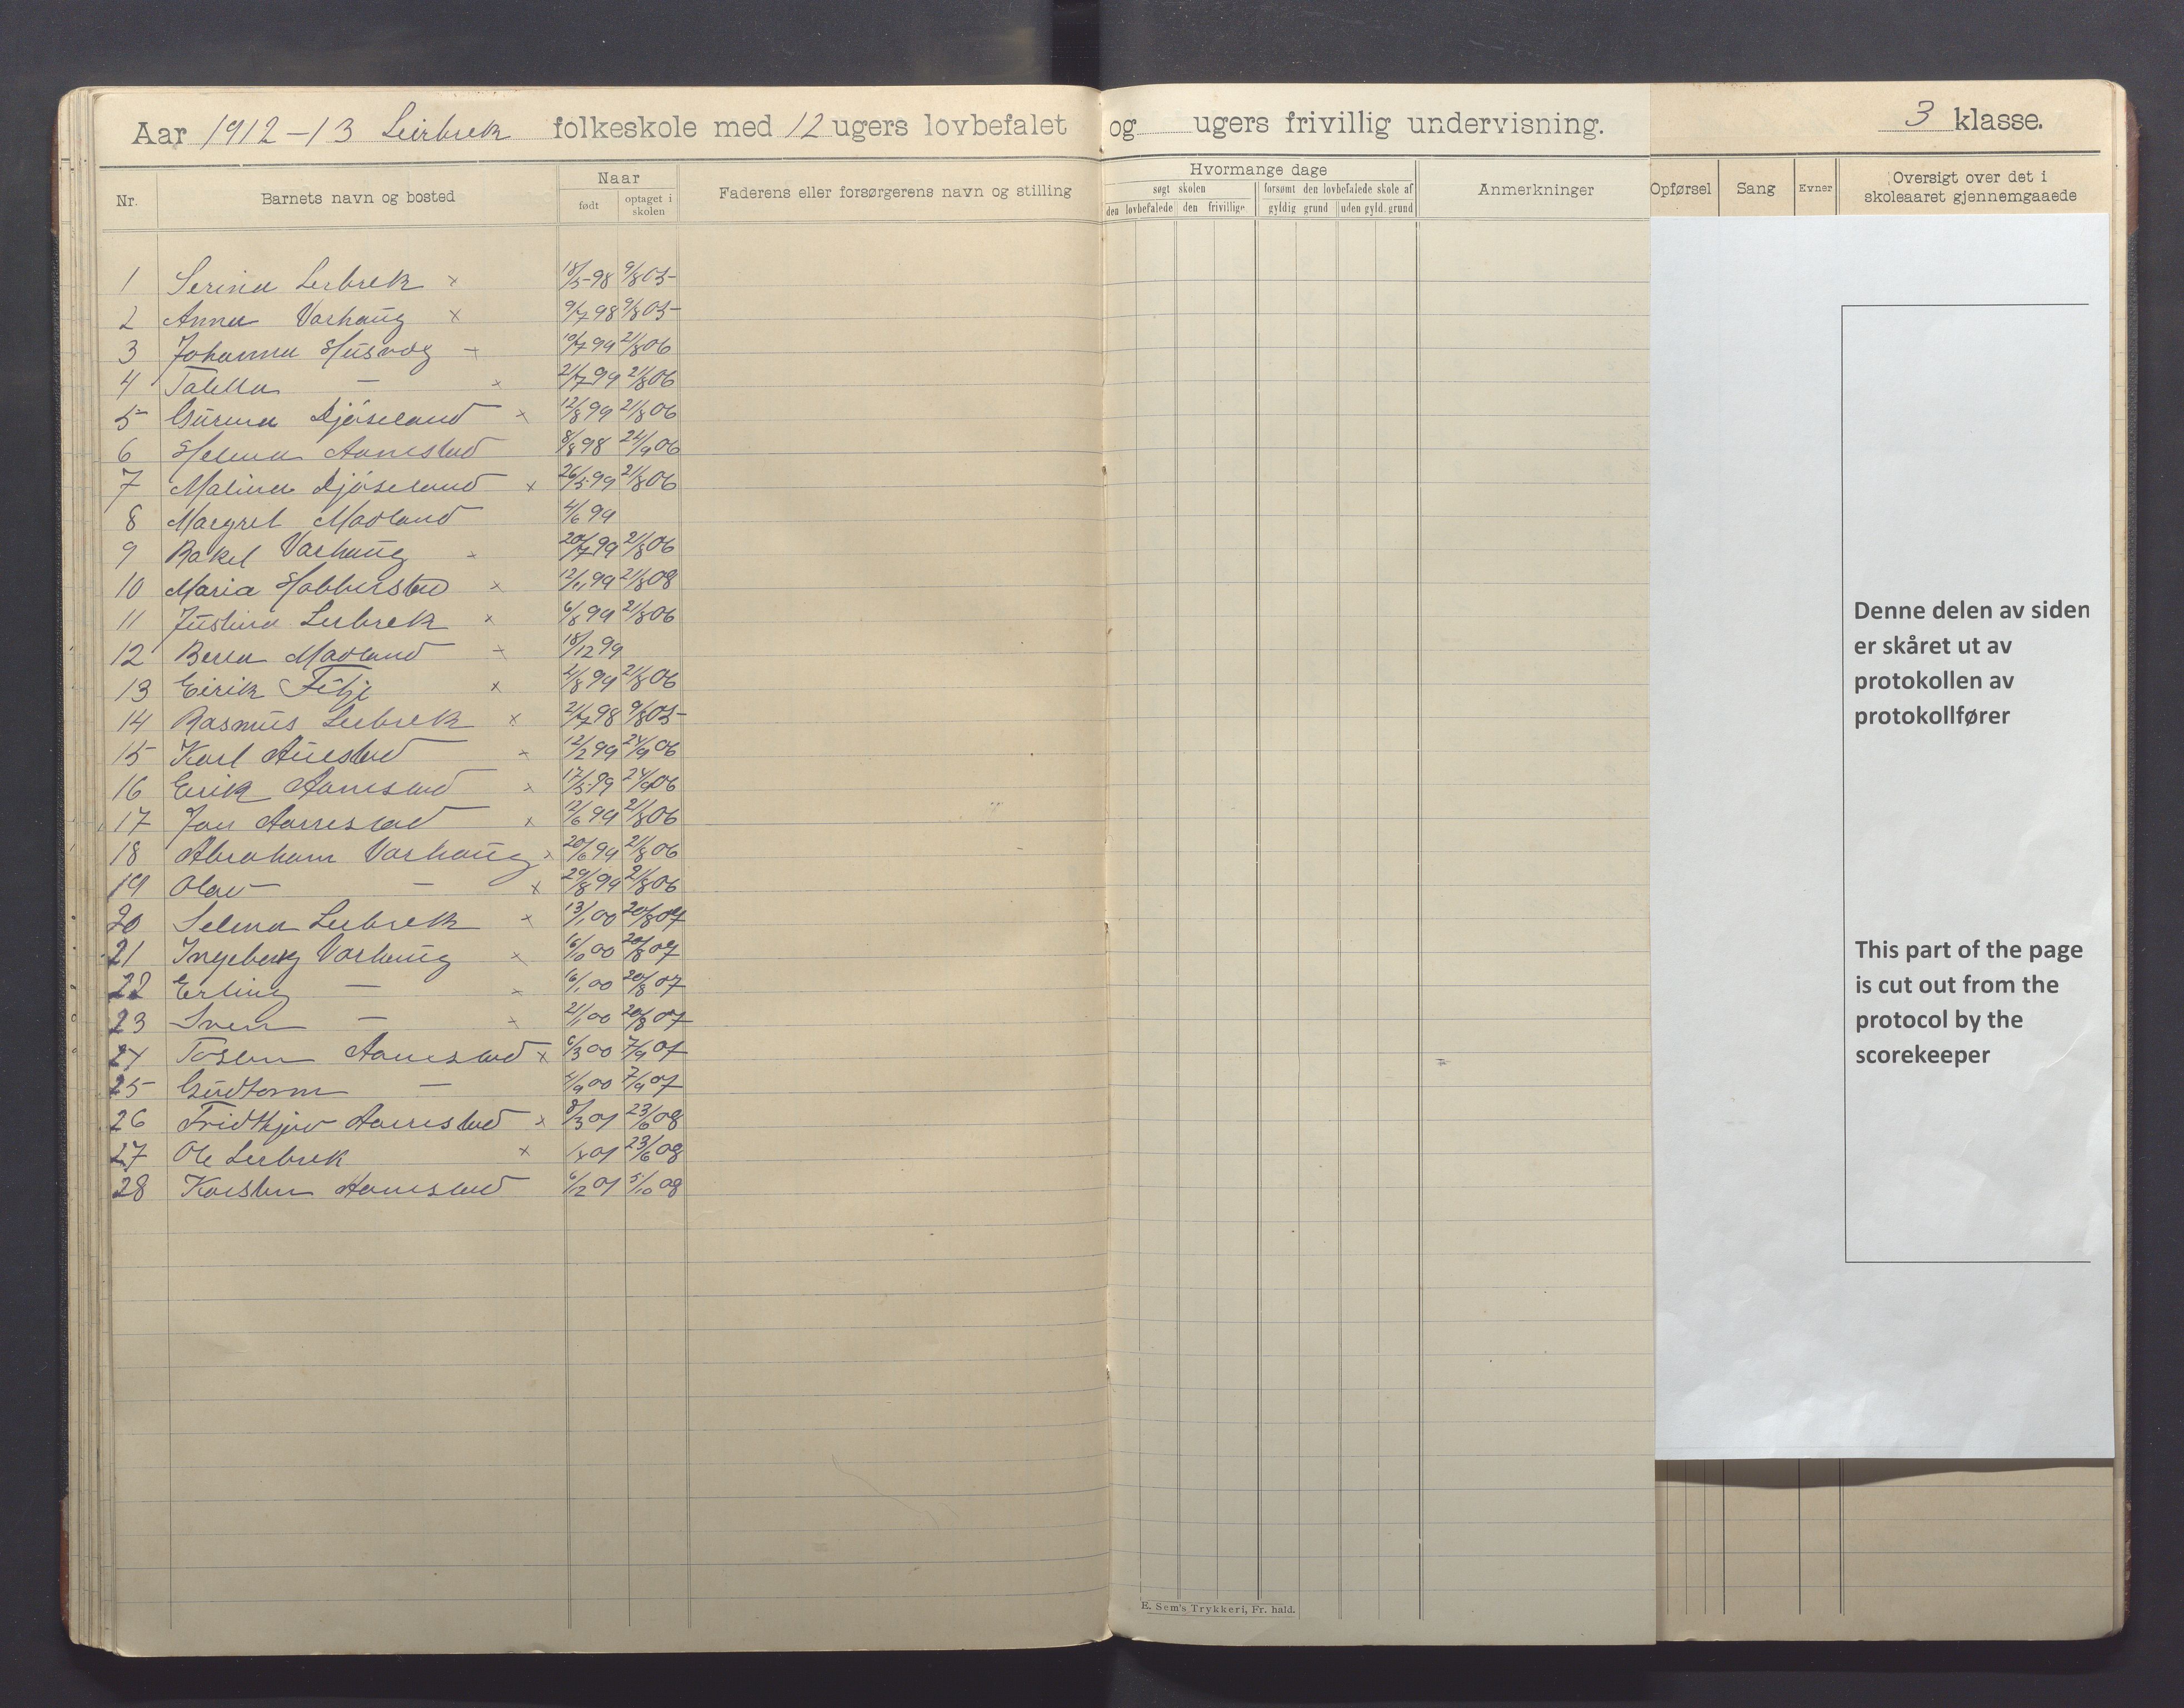 Aar 1912-13 Leirbrek folkeskole med 12 ugers lovbefalet og ugers frivillig undervisning.
3 klasse.
Nr. Barnets navn og bosted Naar født optaget i skolen Faderens eller forsørgerens navn og stilling
Hvormange dage
søgt skolen forsømt den lovbefalede skole af
den lovbefalede den frivillige gyldig grund uden gyld. grund
Anmerkninger
Opførsel Sang Evner Oversigt over det i skoleaaret gjennemgaaede
1 Serina Lerbrek x 18/5-98 9/8 05-
2 Anna Varhaug x 9/7 98 9/8 05-
3 Johanna Husvog 19/7 99 21/8 06
4 Tabitta — x 21/7 99 21/8 06
5 Gurina Djøseland x 12/8 99 21/8 06
6 Helma Aarrestad 8/8 98 24/9 06
7 Malina Djøseland x 26/5-99 21/8 06
8 Margret Madland 4/6 99
9 Rakel Varhaug 20/7 99 21/8 06
10 Maria Hobberstad x 12/11 99 21/8 08
11 Justina Lerbrek x 6/8 99 21/8 06
12 Berta Madland 18/12 99
13 Eirik Fitje x 2/8 99 21/8 06
14 Rasmus Lerbrek x 21/7 98 9/8 05-
15 Karl Auestad x 12/2 99 24/9 06
16 Eirik Aarrestad x 17/5-99 24/9 06
17 Jon Aarrestad x 12/6 99 21/8 06
18 Abraham Varhaug x 20/6 99 21/8 06
19 Olav — x 29/8 99 21/8 06
20 Selma Lerbrek x 13/1 00 20/8 07
21 Ingeborg Varhaug x 16/10 00 20/8 07
22 Erling — x 6/1 00 20/8 07
23 Sven — x 21/1 00 20/8 07
24 Tosten Aarrestad x 6/3 00 7/9 07
25 Gudtorm — 4/9 00 7/9 07
26 Fridtjov Aarrestad x 8/3 01 23/6 08
27 Ole Lerbrek x 1/8 01 23/6 08
28 Karsten Aarrestad 6/12 01 5/10 08
E. Sem's Trykkeri, Fr. hald.
Denne delen av siden
er skåret ut av
protokollen av
protokollfører
This part of the page
is cut out from the
protocol by the
scorekeeper